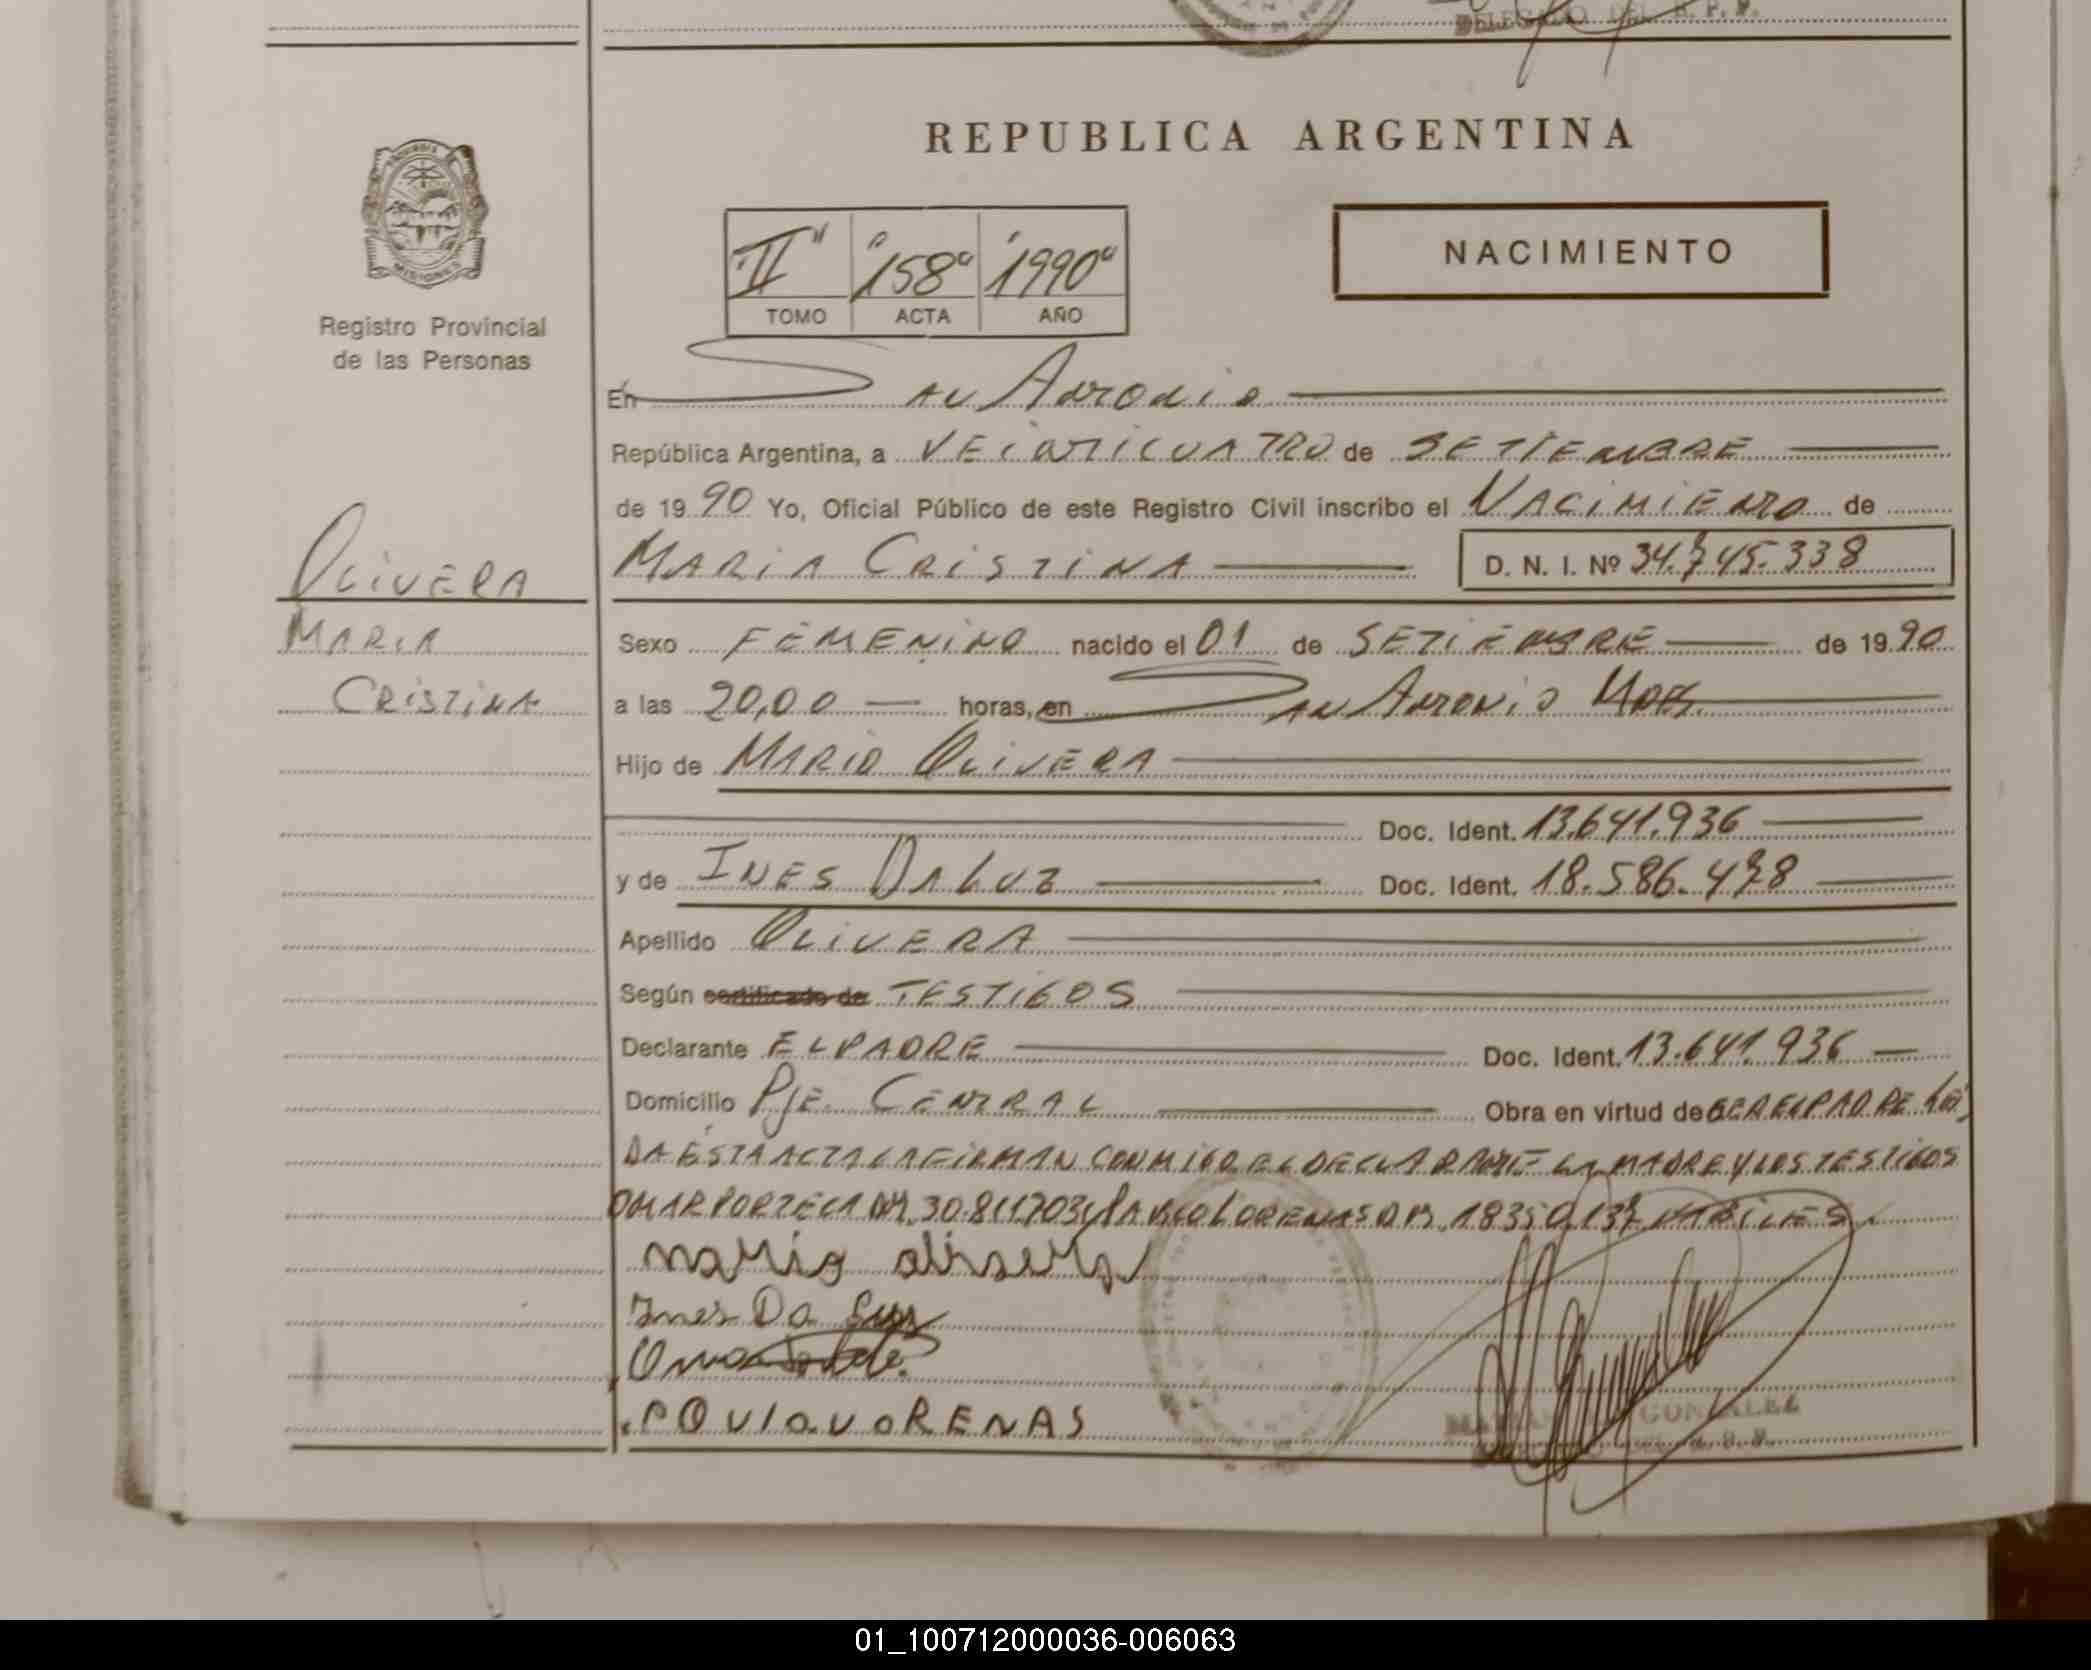 DELEGADO DEL R. P. P.
REPUBLICA ARGENTINA
PROVINCIA
MISIONES
Registro Provincial
de las Personas
"II" "158" "1990"
TOMO ACTA AÑO
NACIMIENTO
En San Antonio
República Argentina, a VEINTICUATRO de SETIEMBRE
de 1990 Yo, Oficial Público de este Registro Civil inscribo el NACIMIENTO de
OLIVERA
MARIA CRISTINA D. N. I. Nº 34.745.338
MARIA
Sexo FEMENINO nacido el 01 de SETIEMBRE de 1990
CRISTINA
a las 20,00 horas, en SAN ANTONIO Mnes.
Hijo de MARIO OLIVERA
Doc. Ident. 13.641.936
y de INES DA LUZ Doc. Ident. 18.586.478
Apellido OLIVERA
Según certificado de TESTIGOS
Declarante EL PADRE Doc. Ident. 13.641.936
Domicilio Pje. CENTRAL Obra en virtud de SER EL PADRE Leí
DA ÉSTA ACTA LA FIRMAN CONMIGO EL DECLARANTE LA MADRE Y LOS TESTIGOS
OMAR PORTELA
mario olivera
Ines Da Luz
LORENAS
GONZALEZ
01_100712000036-006063